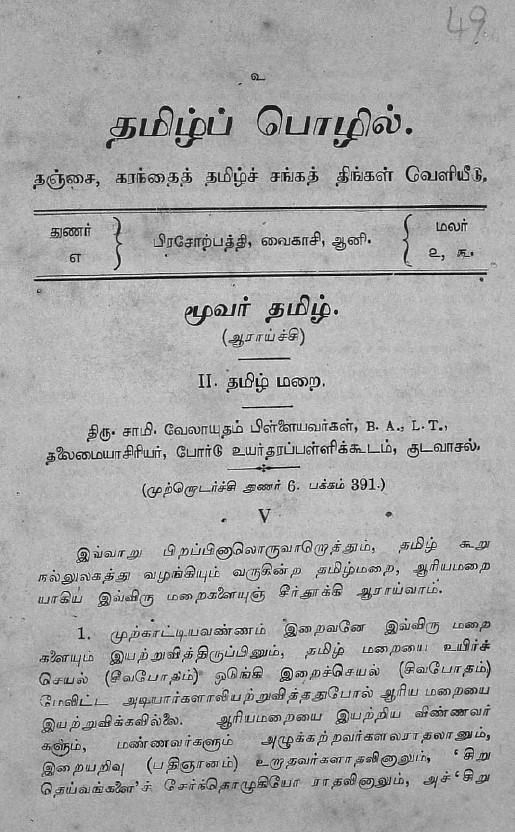 49
உ
தமிழ்ப் பொழில்.
தஞ்சை, கரந்தைத் தமிழ்ச் சங்கத் திங்கள் வேளியீடு.
துணர் எ } பிரசோற்பத்தி, வைகாசி, ஆனி. { மலர் உ, ௩.
மூவர் தமிழ்.
(ஆராய்ச்சி)
II. தமிழ் மறை.
திரு. சாமி. வேலாயுதம் பிள்ளையவர்கள், B. A., L. T.,
தலைமையாசிரியர், போர்டு உயர்தரப்பள்ளிக்கூடம், குடவாசல்.
(முற்றொடர்ச்சி துணர் 6. பக்கம் 391.)
V
இவ்வாறு பிறப்பினாலொருவாறொத்தும், தமிழ் கூறு
நல்லுலகத்து வழங்கியும் வருகின்ற தமிழ்மறை, ஆரியமறை
யாகிய இவ்விரு மறைகளையுஞ் சீர்தூக்கி ஆராய்வாம்.
1. முற்காட்டியவண்ணம் இறைவனே இவ்விரு மறை
களையும் இயற்றுவித்திருப்பினும், தமிழ் மறையை உயிர்ச்
செயல் (சீவபோதம்) ஒடுங்கி இறைச்செயல் (சிவபோதம்)
மேலிட்ட அடியார்களாலியற்றுவித்ததுபோல் ஆரிய மறையை
இயற்றுவிக்கவில்லை. ஆரியமறையை இயற்றிய விண்ணவர்
களும், மண்ணவர்களும் அழுக்கற்றவர்களலராதலானும்,
இறையறிவு (பதிஞானம்) உறுதவர்களாதலினாலும், ‘சிறு
தெய்வங்களை’ச் சேர்ந்தொழுகியோ ராதலினாலும், அச் ‘சிறு